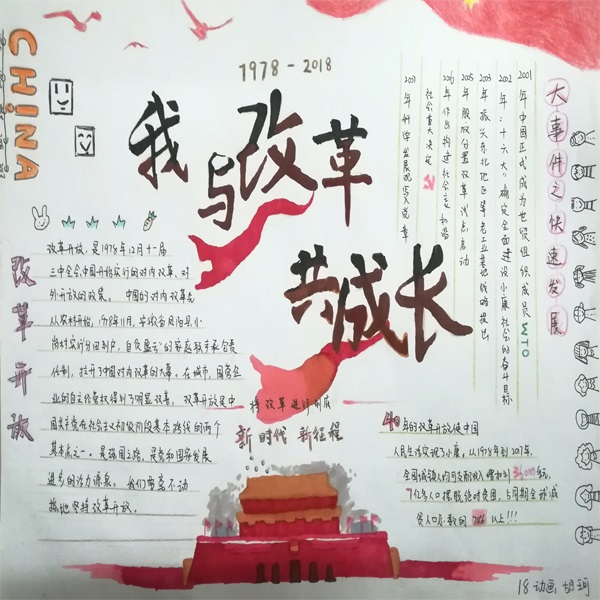 CHiNA
1978-2018
我
与改革
共成长
大事件之快速发展
2001年中国正式成为世贸组织成员 WTO
2002年:十六大:确定全面建设小康社会的奋斗目标
2003年振兴东北地区等老工业基地战略提出
2005年股权分置改革试点启动
2006年作出构建社会主义和谐
社会重大决定
2007年科学发展观写入党章
改革开放
改革开放,是1978年12月十一届
三中全会中国开始实行的对内改革、对
外开放的政策。中国的对内改革先
从农村开始,1978年11月,安徽省凤阳县小
岗村实行分田到户,自负盈亏的家庭联产承包责
任制,拉开了中国对内改革的大幕。在城市,国营企
业的自主经营权得到了明显改善。改革开放是中
国共产党在社会主义初级阶段基本路线的两个
基本点之一。是强国之路,是党和国家发展
进步的活力源泉。我们要毫不动
摇地坚持改革开放。
将改革进行到底
新时代 新征程
40年的改革开放使中国
人民生活实现了小康,从1978年到2017年,
全国城镇人均可支配收入增加到36,000多元,
7亿多人口摆脱绝对贫困,占同期全球减
贫人口总数的70%以上!!!
18动画 胡珂